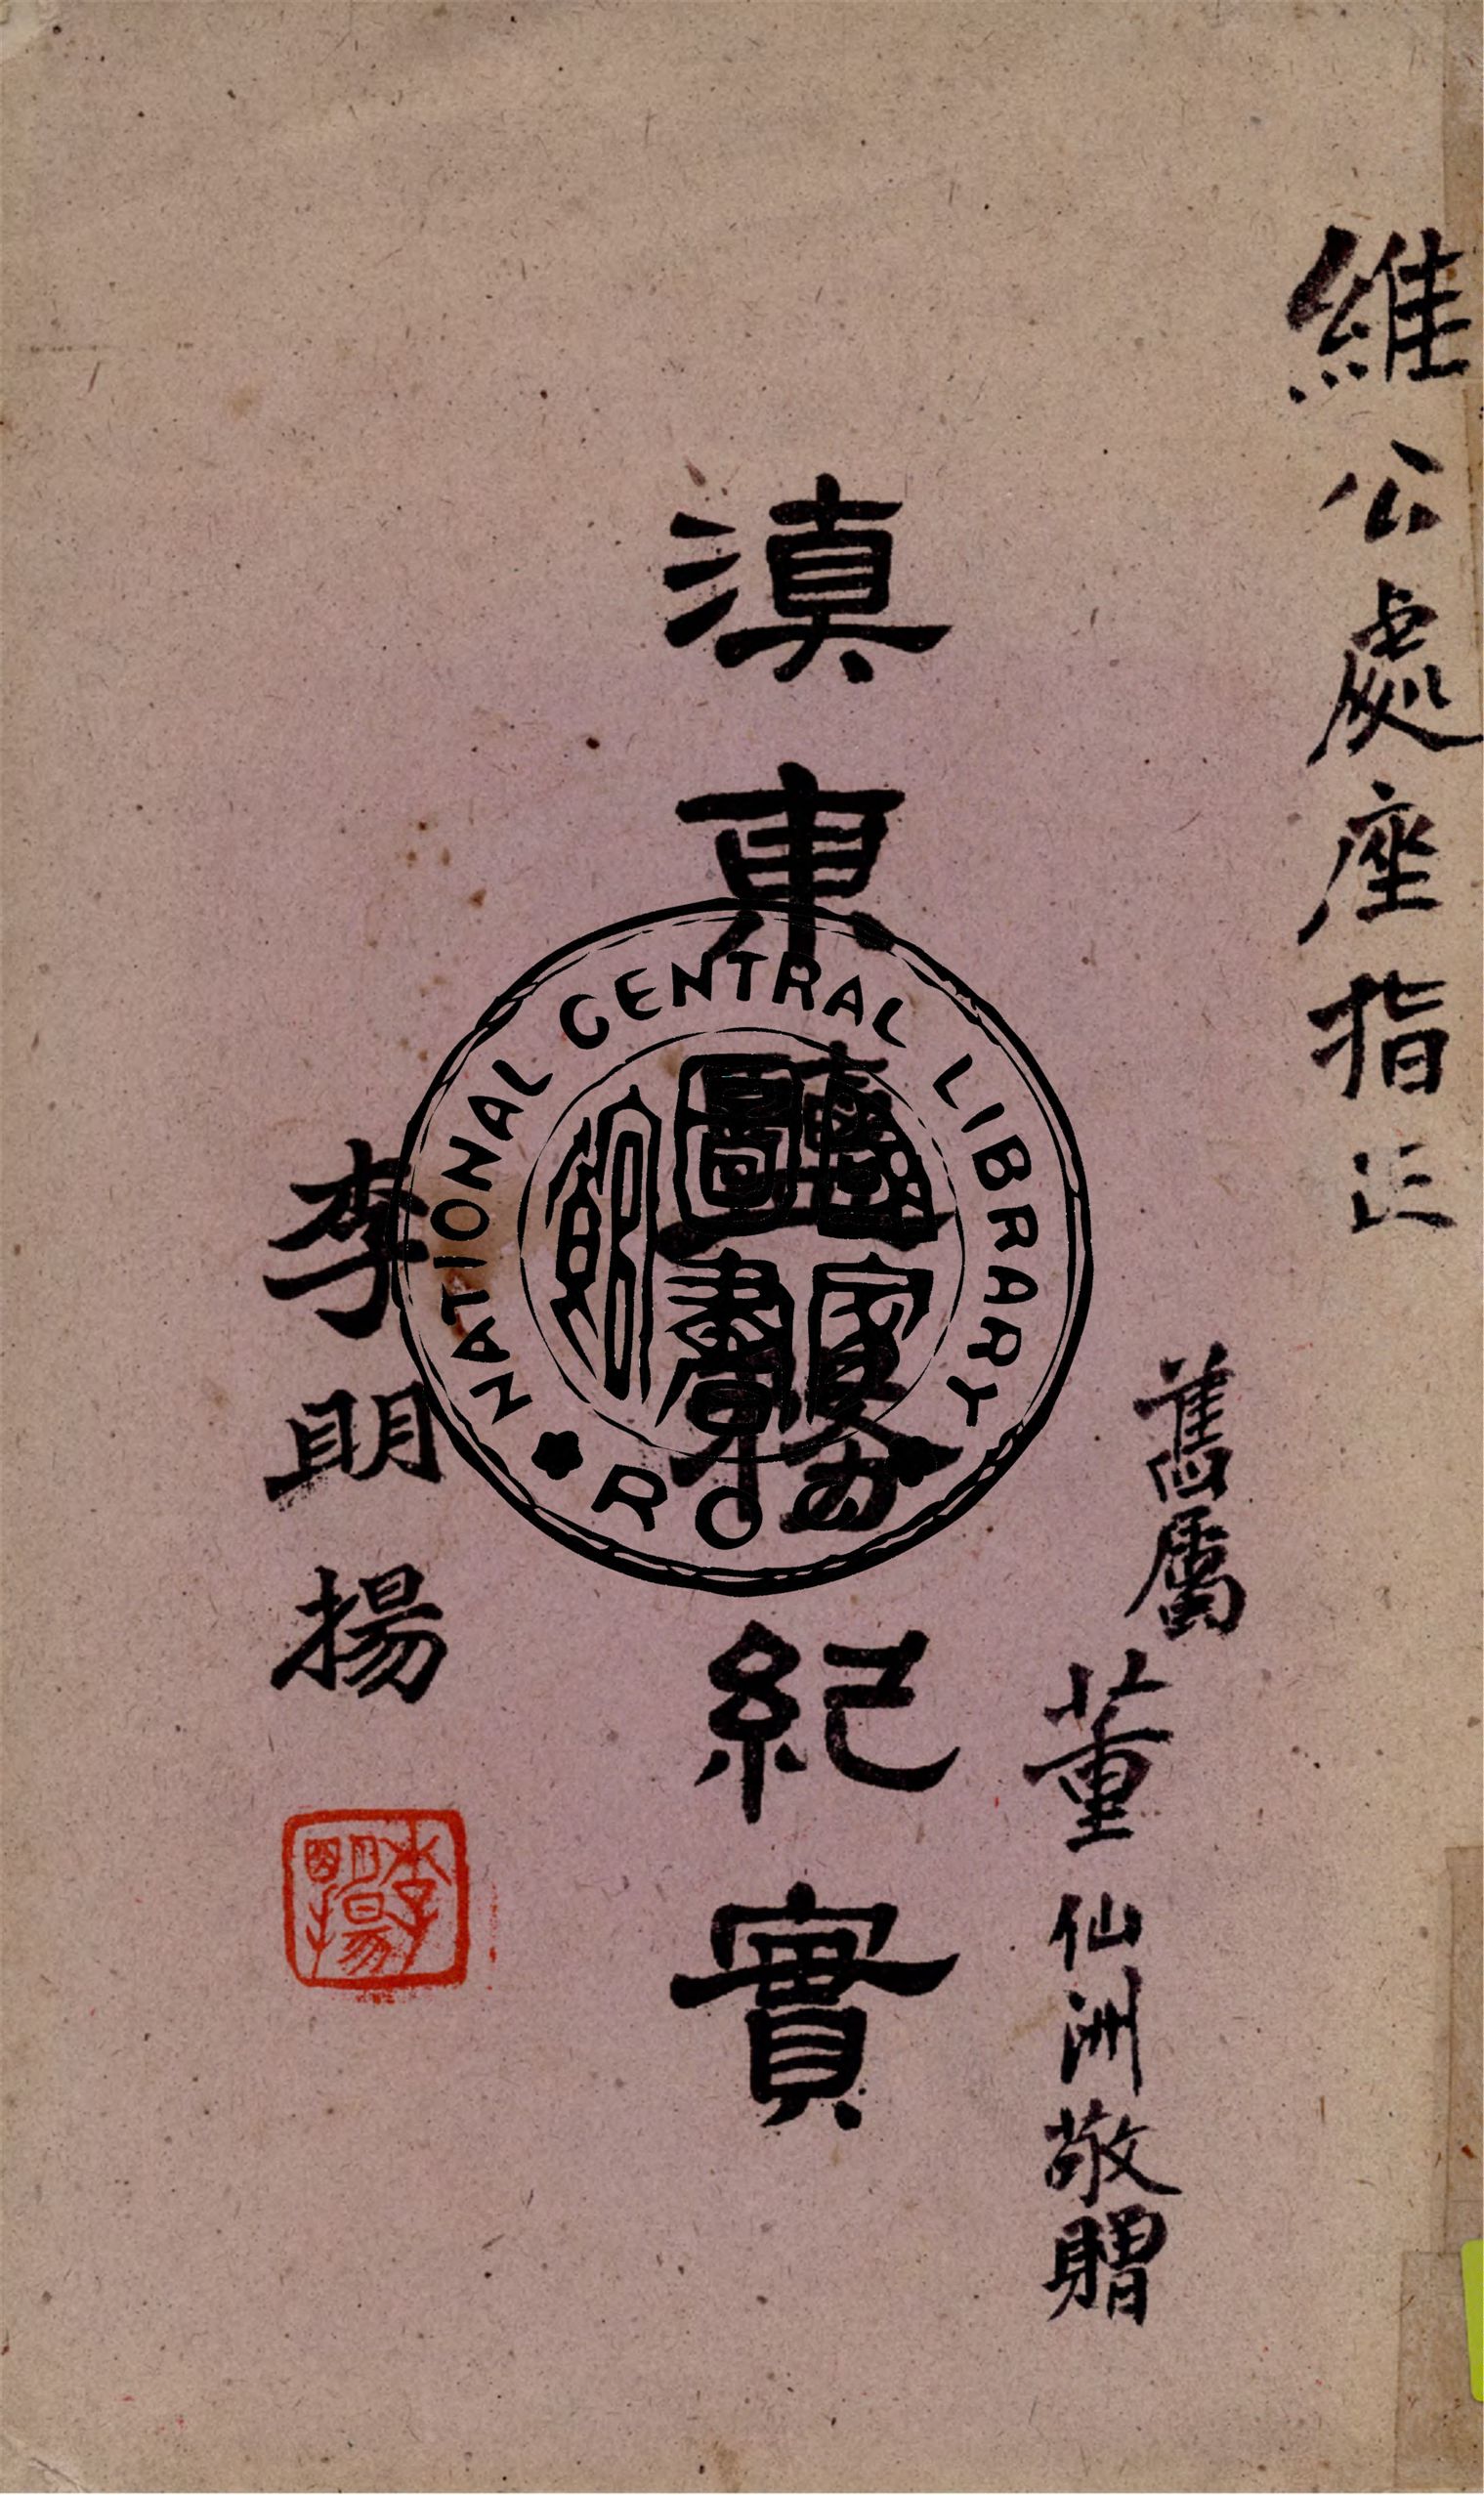 維公處座指正
舊屬董仙洲敬贈
滇東 務紀實
李明揚
李明揚
NATIONAL CENTRAL LIBRARY
ROC
國家圖書館